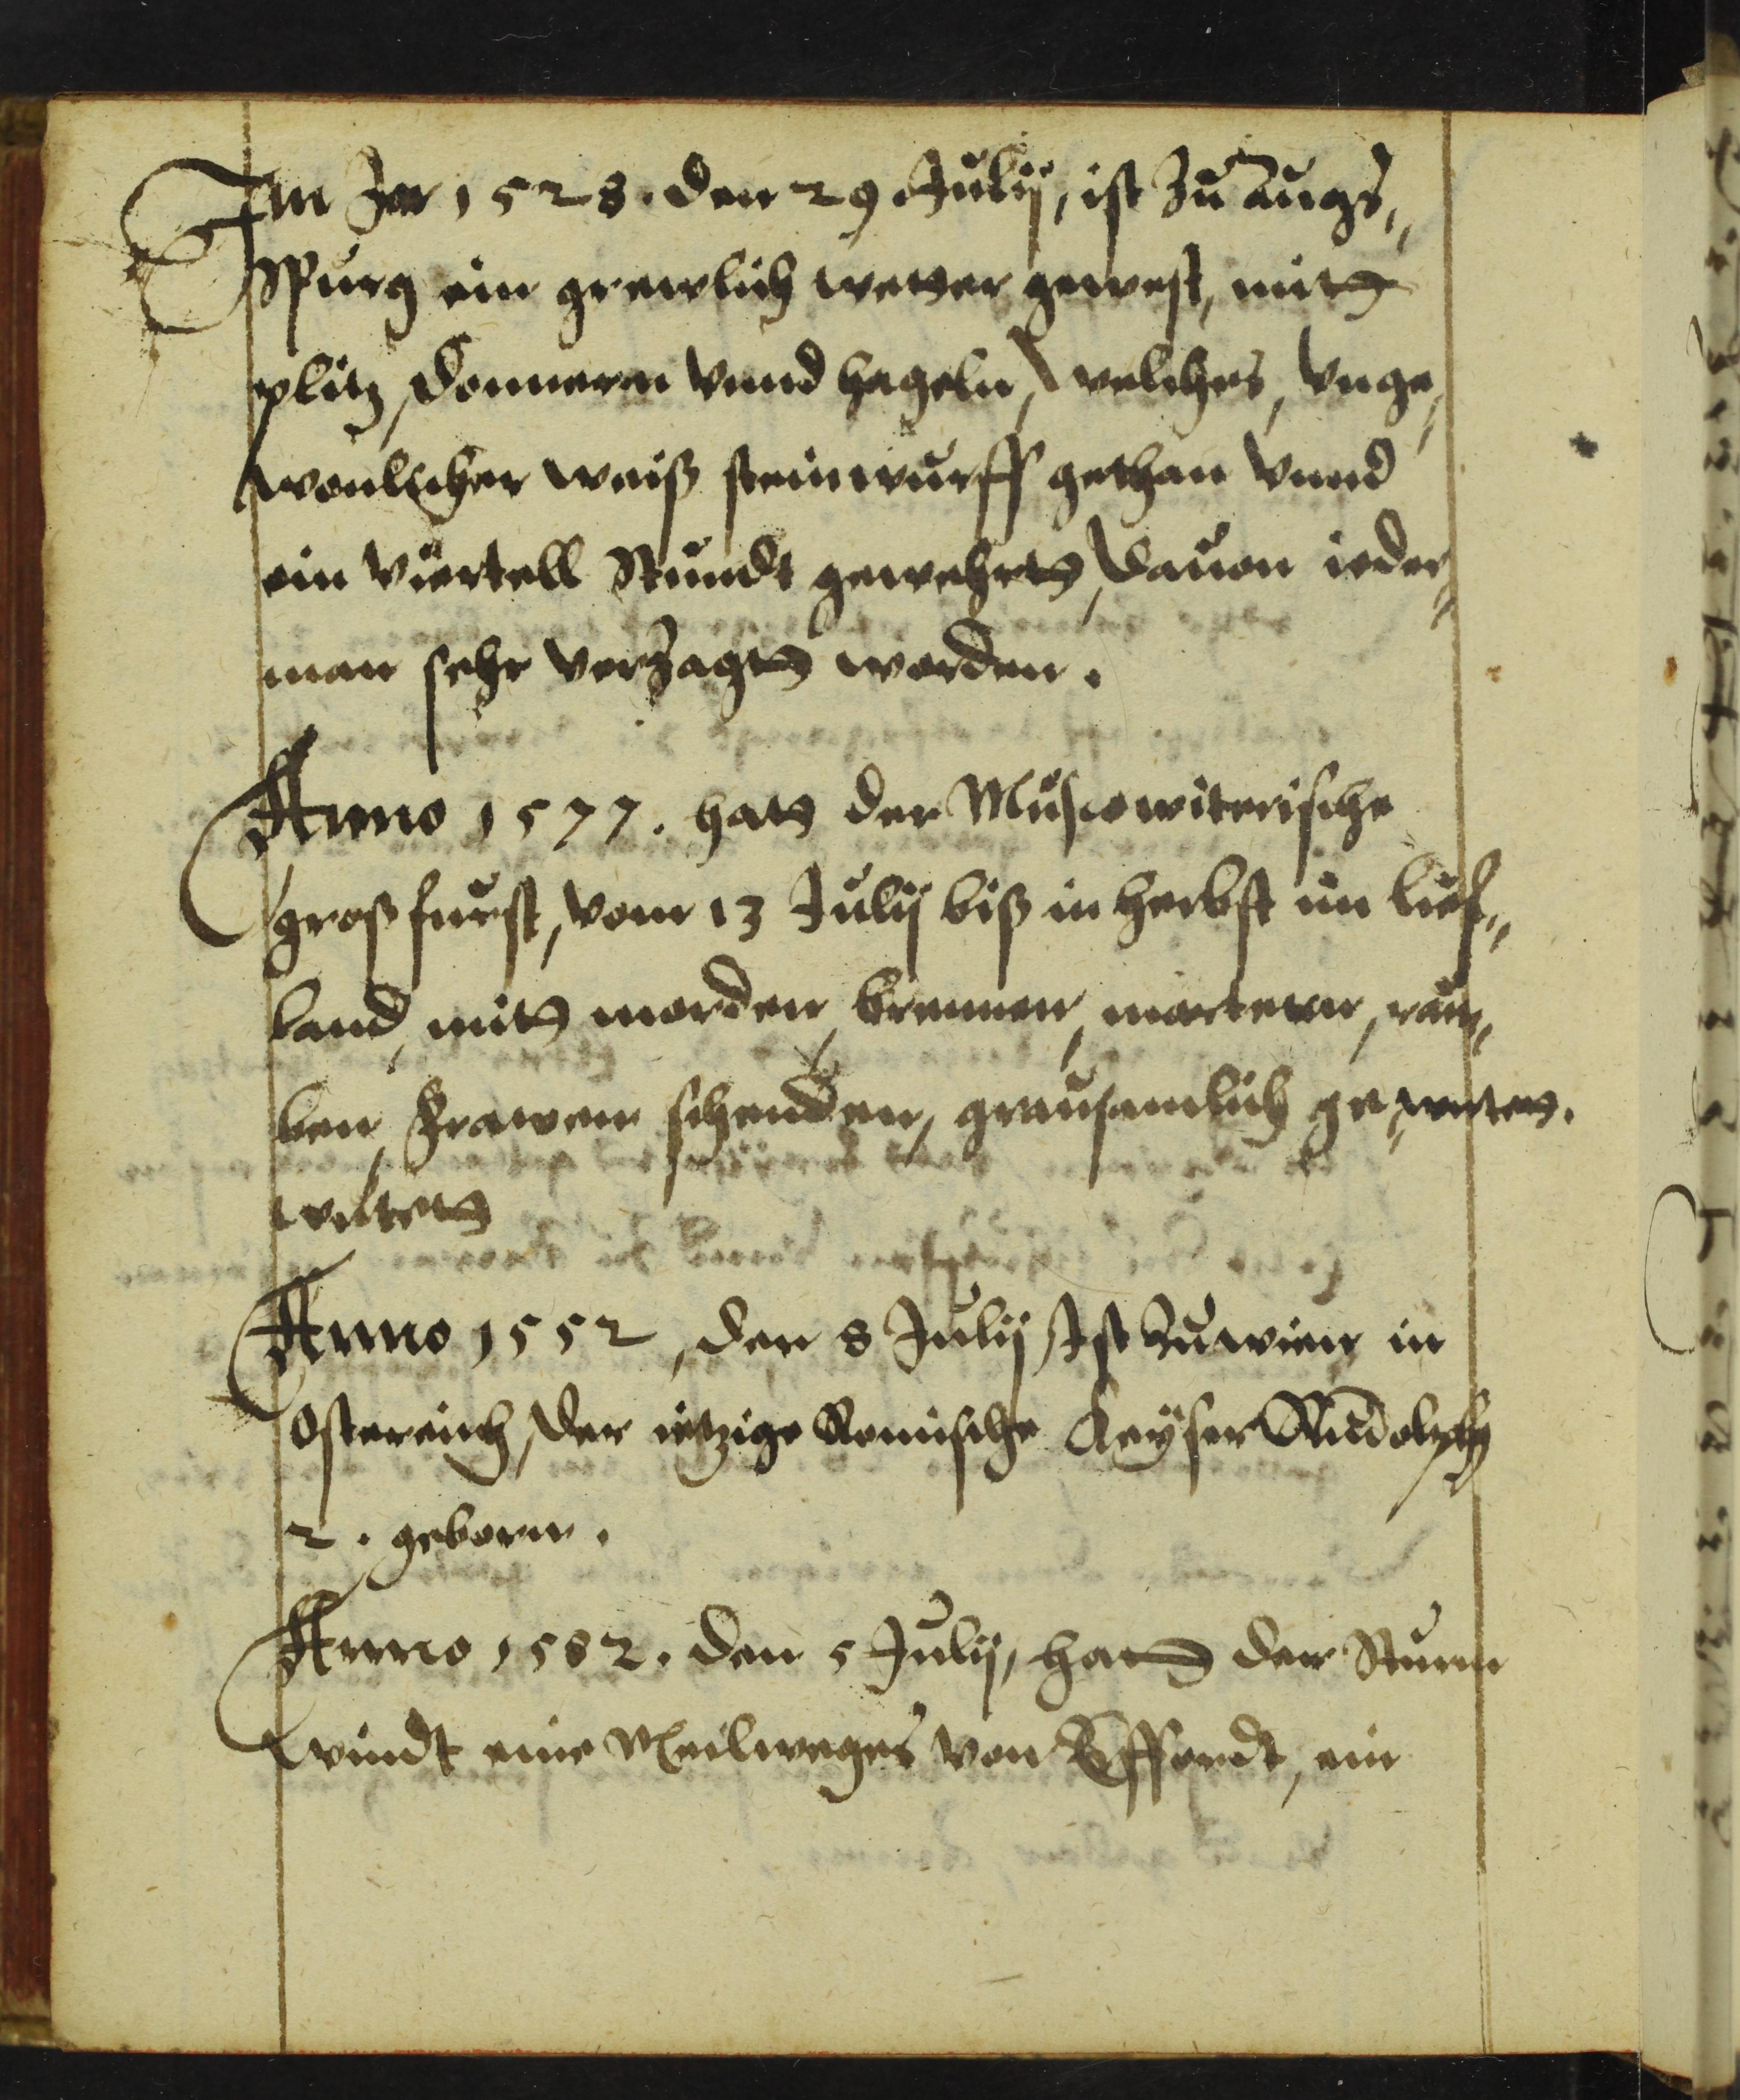 Im Jar 1528. den 29 Julij, ist zu Augs,,
spurg ein grewlich wetter gewest, mitt
plitz, donnern vnnd hageln, welches, vnge,,
wonlicher weiß steinwurff gethan vnnd
ein viertell stundt gewehrtt, dauon ieder,,
man sehr verzagtt worden.
Anno 1577. hatt der Muscowiterische
großfurst, vom 13 Julij biß in herbst in lief,,
land, mitt morden, brennen, martern, rau,,
ben, frawen schenden, grausamlich ge,, wutett.
wutett
Anno 1552, den 8 Julij Ist zu wien in
Ostereich, der ietzige Romische Keyser Rudolph
2. geborn.
Anno 1582. den 5 Julij, hatt der Sturm
windt eine Meilweges von Effordt, ein